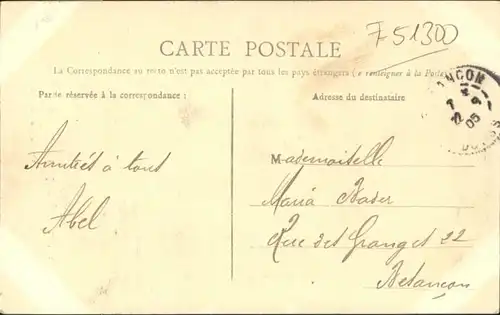 F51300
CARTE POSTALE
La Correspondance au recto n'est pas acceptée par tous les pays étrangers (se renseigner à la Poste)
Partie réservée à la correspondance :
Adresse du destinataire
Amitiés à tous
Abel
Mademoiselle
Maria
Rue des Granges 22
Besançon